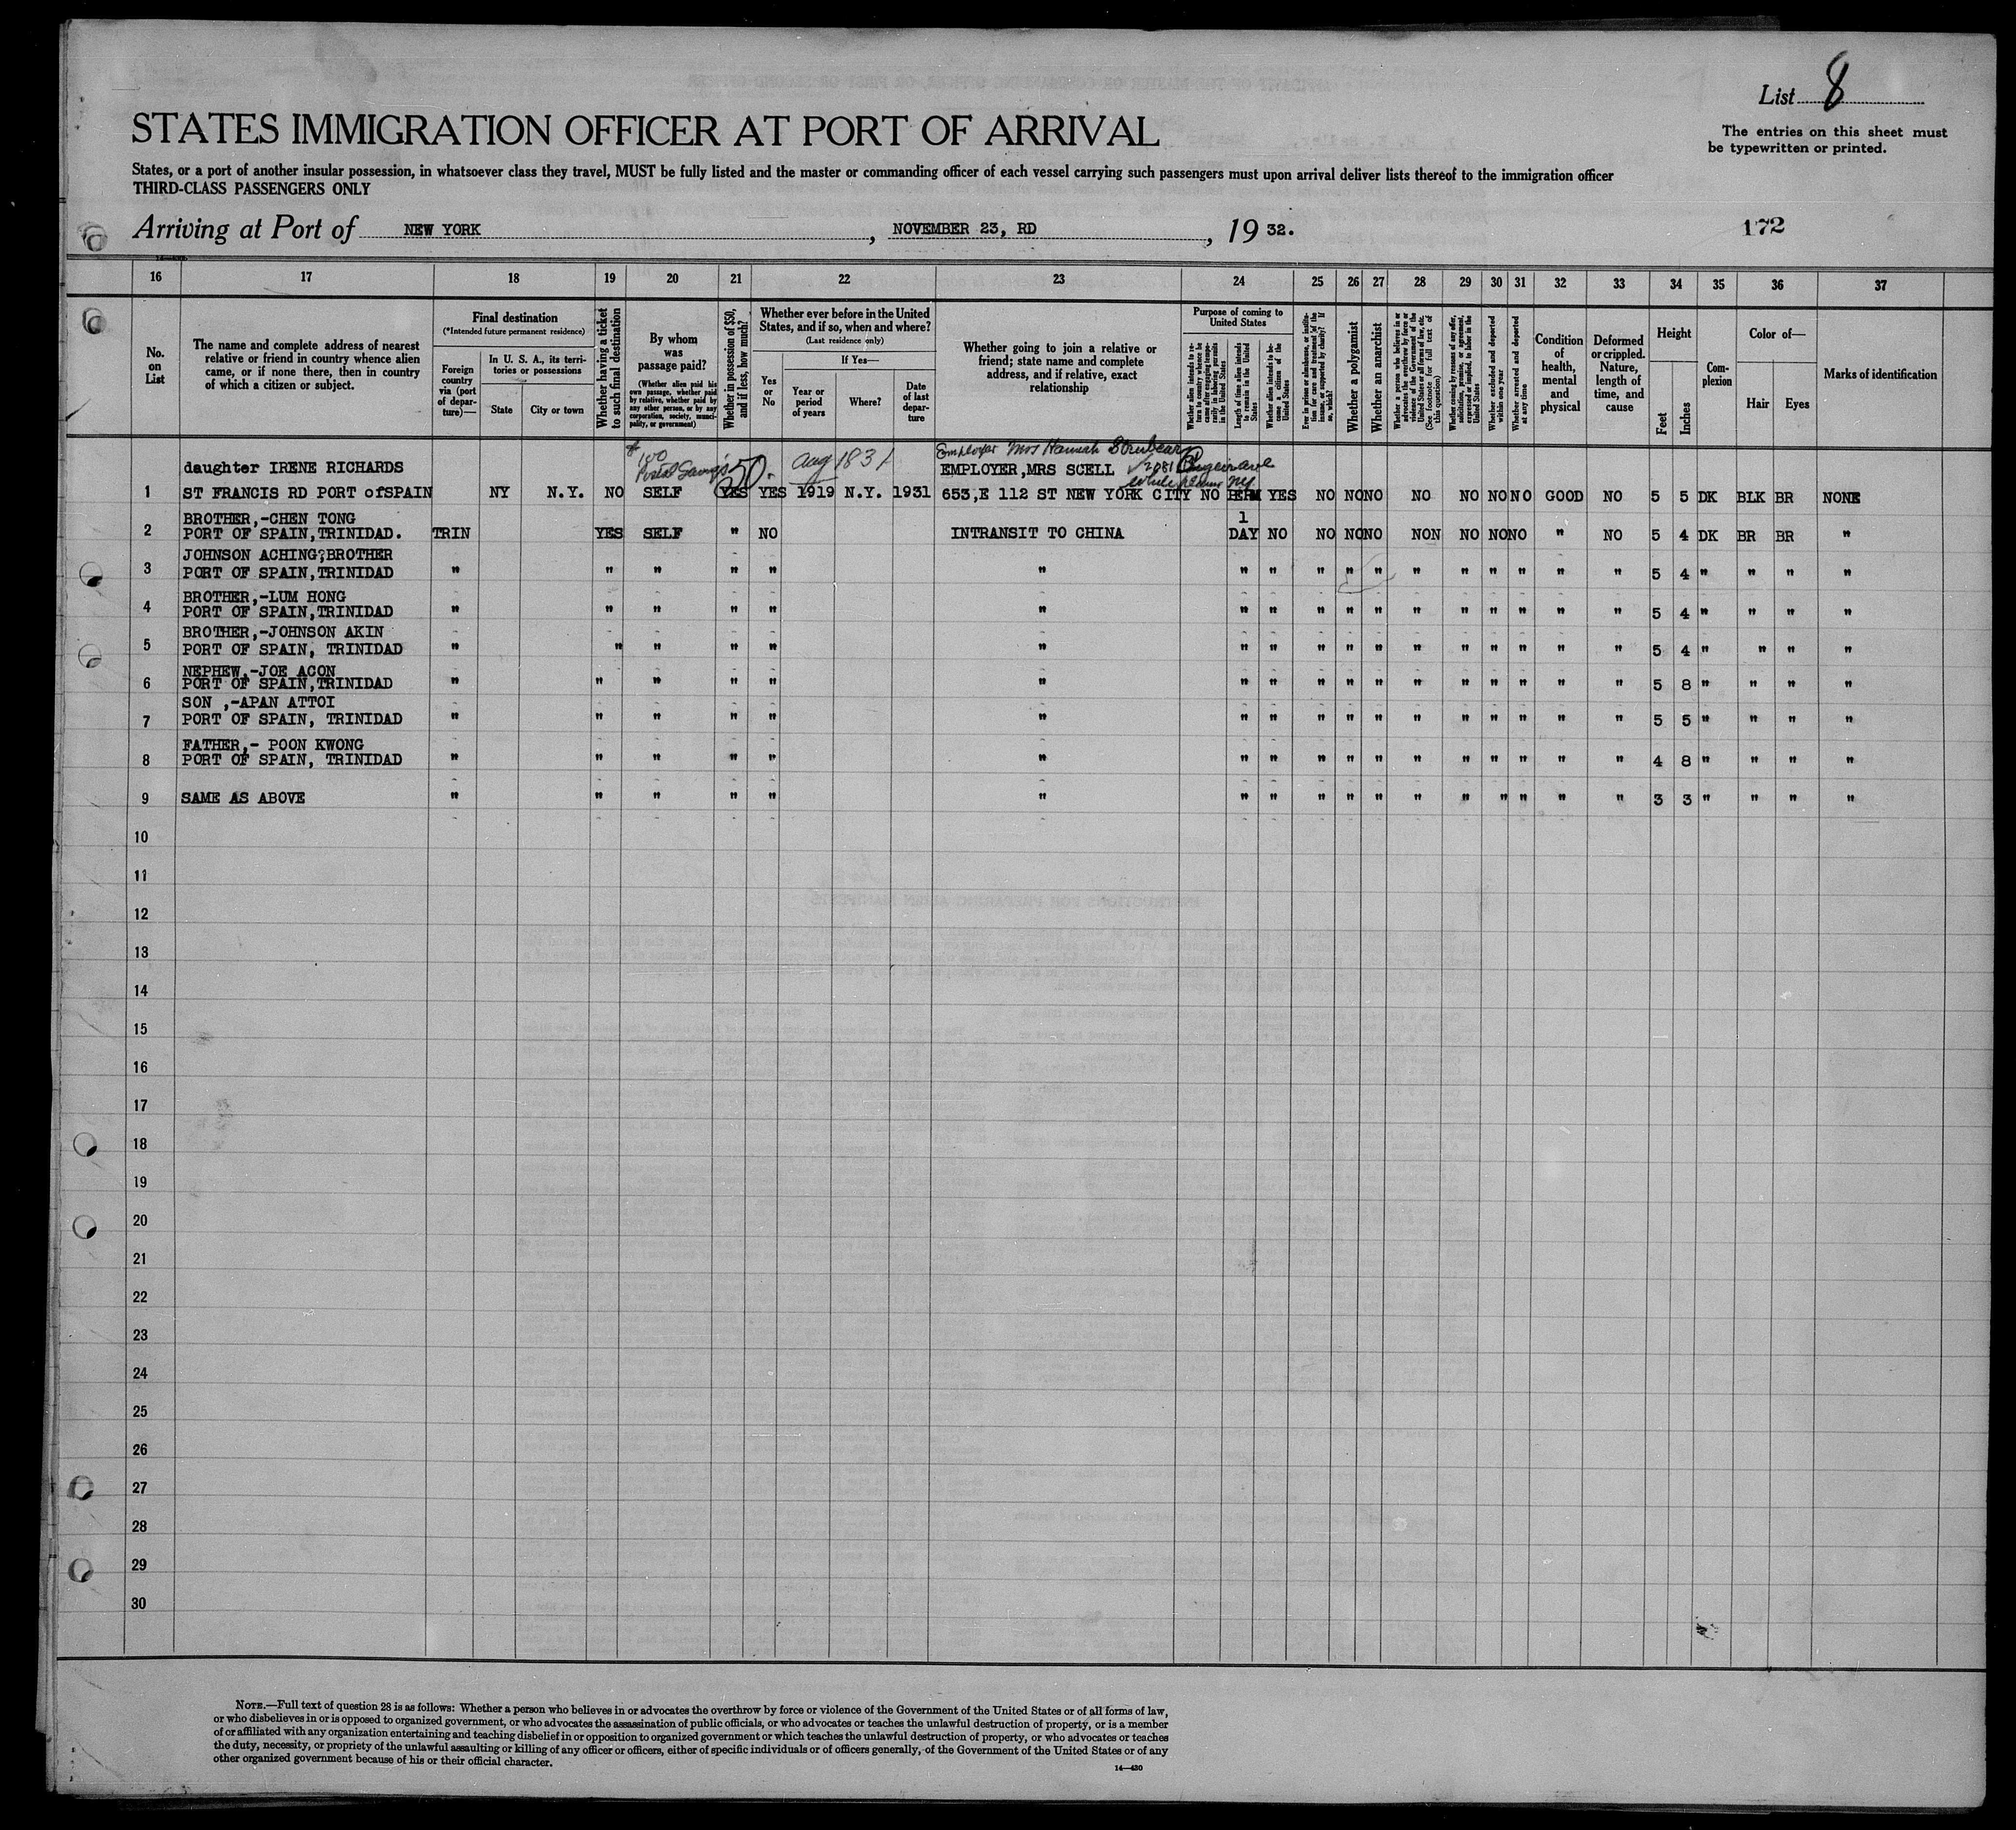 List 8
STATES IMMIGRATION OFFICER AT PORT OF ARRIVAL
The entries on this sheet must
be typewritten or printed.
States, or a port of another insular possession, in whatsoever class they travel, MUST be fully listed and the master or commanding officer of each vessel carrying such passengers must upon arrival deliver lists thereof to the immigration officer
THIRD-CLASS PASSENGERS ONLY
Arriving at Port of NEW YORK, NOVEMBER 23, RD, 19 32.
172
16 17 18 19 20 21 22 23 24 25 26 27 28 29 30 31 32 33 34 35 36 37
No. on List
The name and complete address of nearest relative or friend in country whence alien came, or if none there, then in country of which a citizen or subject.
Final destination
(*Intended future permanent residence)
Foreign country via (port of departure)—
In U. S. A., its territories or possessions
State
City or town
Whether having a ticket to such final destination
By whom was passage paid?
(Whether alien paid his own passage, whether paid by relative, whether paid by any other person, or by any corporation, society, municipality, or government)
Whether in possession of $50, and if less, how much?
Whether ever before in the United States, and if so, when and where?
(Last residence only)
Yes or No
If Yes—
Year or period of years
Where?
Date of last departure
Whether going to join a relative or friend; state name and complete address, and if relative, exact relationship
Purpose of coming to United States
Whether alien intends to return to country whence he came after engaging temporarily in laboring pursuits in the United States
Length of time alien intends to remain in the United States
Whether alien intends to become a citizen of the United States
Ever in prison or almshouse, or institution for care and treatment of the insane, or supported by charity? If so, which?
Whether a polygamist
Whether an anarchist
Whether a person who believes in or advocates the overthrow by force or violence of the Government of the United States or all forms of law, etc. (See footnote for full text of this question)
Whether coming by reasons of any offer, solicitation, promise, or agreement, expressed or implied, to labor in the United States
Whether excluded and deported within one year
Whether arrested and deported at any time
Condition of health, mental and physical
Deformed or crippled. Nature, length of time, and cause
Height
Feet
Inches
Complexion
Color of—
Hair
Eyes
Marks of identification
100 Postal Savings 50.- Aug 1831 Employer Mrs Hannah
daughter IRENE RICHARDS EMPLOYER,MRS SCELL 2081 ave
1 ST FRANCIS RD PORT ofSPAIN NY N.Y. NO SELF YES YES 1919 N.Y. 1931 653,E 112 ST NEW YORK CITY NO PERM YES NO NO NO NO NO NO NO GOOD NO 5 5 DK BLK BR NONE
BROTHER,-CHEN TONG 1
2 PORT OF SPAIN,TRINIDAD. TRIN YES SELF " NO INTRANSIT TO CHINA DAY NO NO NO NO NON NO NO NO " NO 5 4 DK BR BR "
JOHNSON ACHING?BROTHER
3 PORT OF SPAIN,TRINIDAD " " " " " " " " " " " " " " " " " 5 4 " " " "
BROTHER,-LUM HONG
4 PORT OF SPAIN,TRINIDAD " " " " " " " " " " " " " " " " " 5 4 " " " "
BROTHER,-JOHNSON AKIN
5 PORT OF SPAIN, TRINIDAD " " " " " " " " " " " " " " " " " 5 4 " " " "
NEPHEW,-JOE ACON
6 PORT OF SPAIN,TRINIDAD " " " " " " " " " " " " " " " " " 5 8 " " " "
SON ,-APAN ATTOI
7 PORT OF SPAIN, TRINIDAD " " " " " " " " " " " " " " " " " 5 5 " " " "
FATHER,- POON KWONG
8 PORT OF SPAIN, TRINIDAD " " " " " " " " " " " " " " " " " 4 8 " " " "
9 SAME AS ABOVE " " " " " " " " " " " " " " " " " 3 3 " " " "
10
11
12
13
14
15
16
17
18
19
20
21
22
23
24
25
26
27
28
29
30
NOTE.—Full text of question 28 is as follows: Whether a person who believes in or advocates the overthrow by force or violence of the Government of the United States or of all forms of law,
or who disbelieves in or is opposed to organized government, or who advocates the assassination of public officials, or who advocates or teaches the unlawful destruction of property, or is a member
of or affiliated with any organization entertaining and teaching disbelief in or opposition to organized government or which teaches the unlawful destruction of property, or who advocates or teaches
the duty, necessity, or propriety of the unlawful assaulting or killing of any officer or officers, either of specific individuals or of officers generally, of the Government of the United States or of any
other organized government because of his or their official character.
14—430